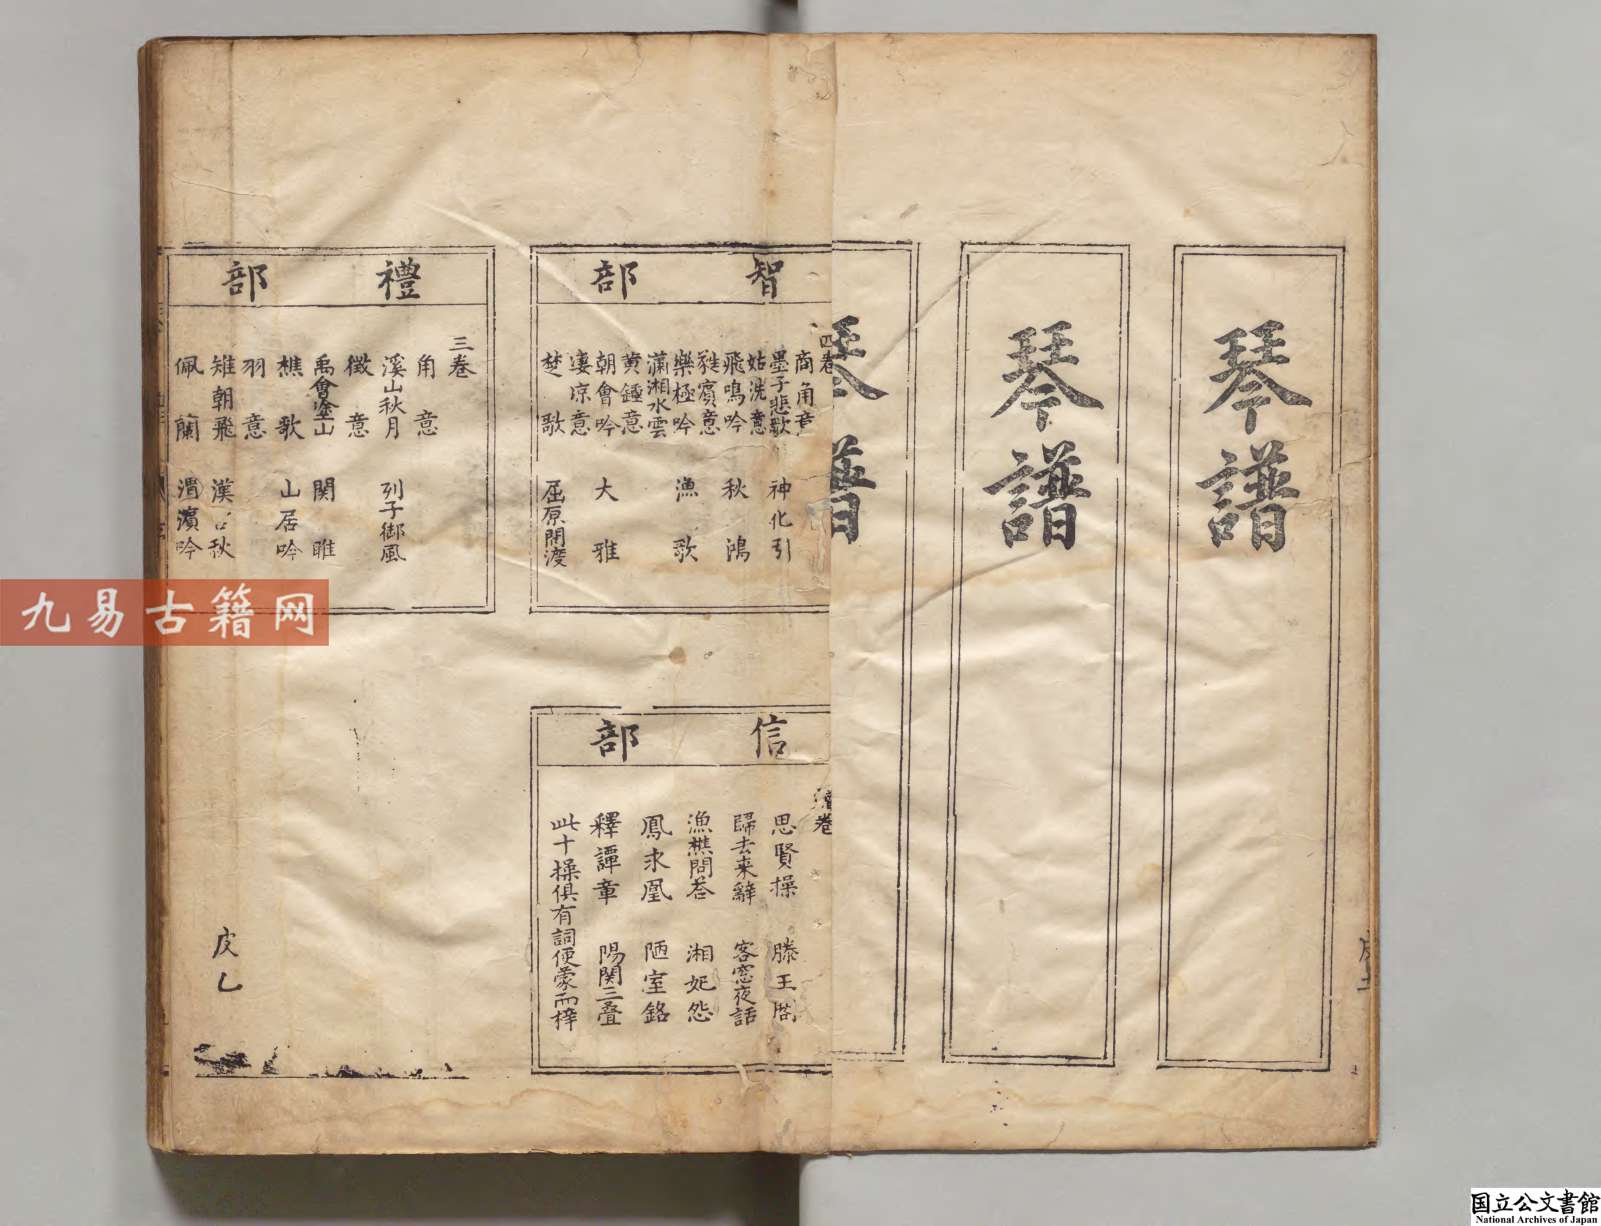 琴譜
琴譜
琴譜
智部
四卷
商角意
墨子悲歌 神化引
姑洗意
飛鳴吟 秋鴻
蕤賓意
樂極吟 漁歌
瀟湘水雲
黄鍾意
朝會吟 大雅
淒凉意
楚歌 屈原問渡
信部
卷
思賢操 滕王閣
歸去来辭 客窓夜話
漁樵問荅 湘妃怨
鳳求凰 陋室銘
釋譚章 陽関三疊
此十操俱有詞便蒙而梓
禮部
三卷
角意
溪山秋月 列子御風
徵意
禹會塗山 関雎
樵歌 山居吟
羽意
雉朝飛 漢宫秋
佩蘭 渭濱吟
戌乙
九易古籍网
国立公文書館
National Archives of Japan